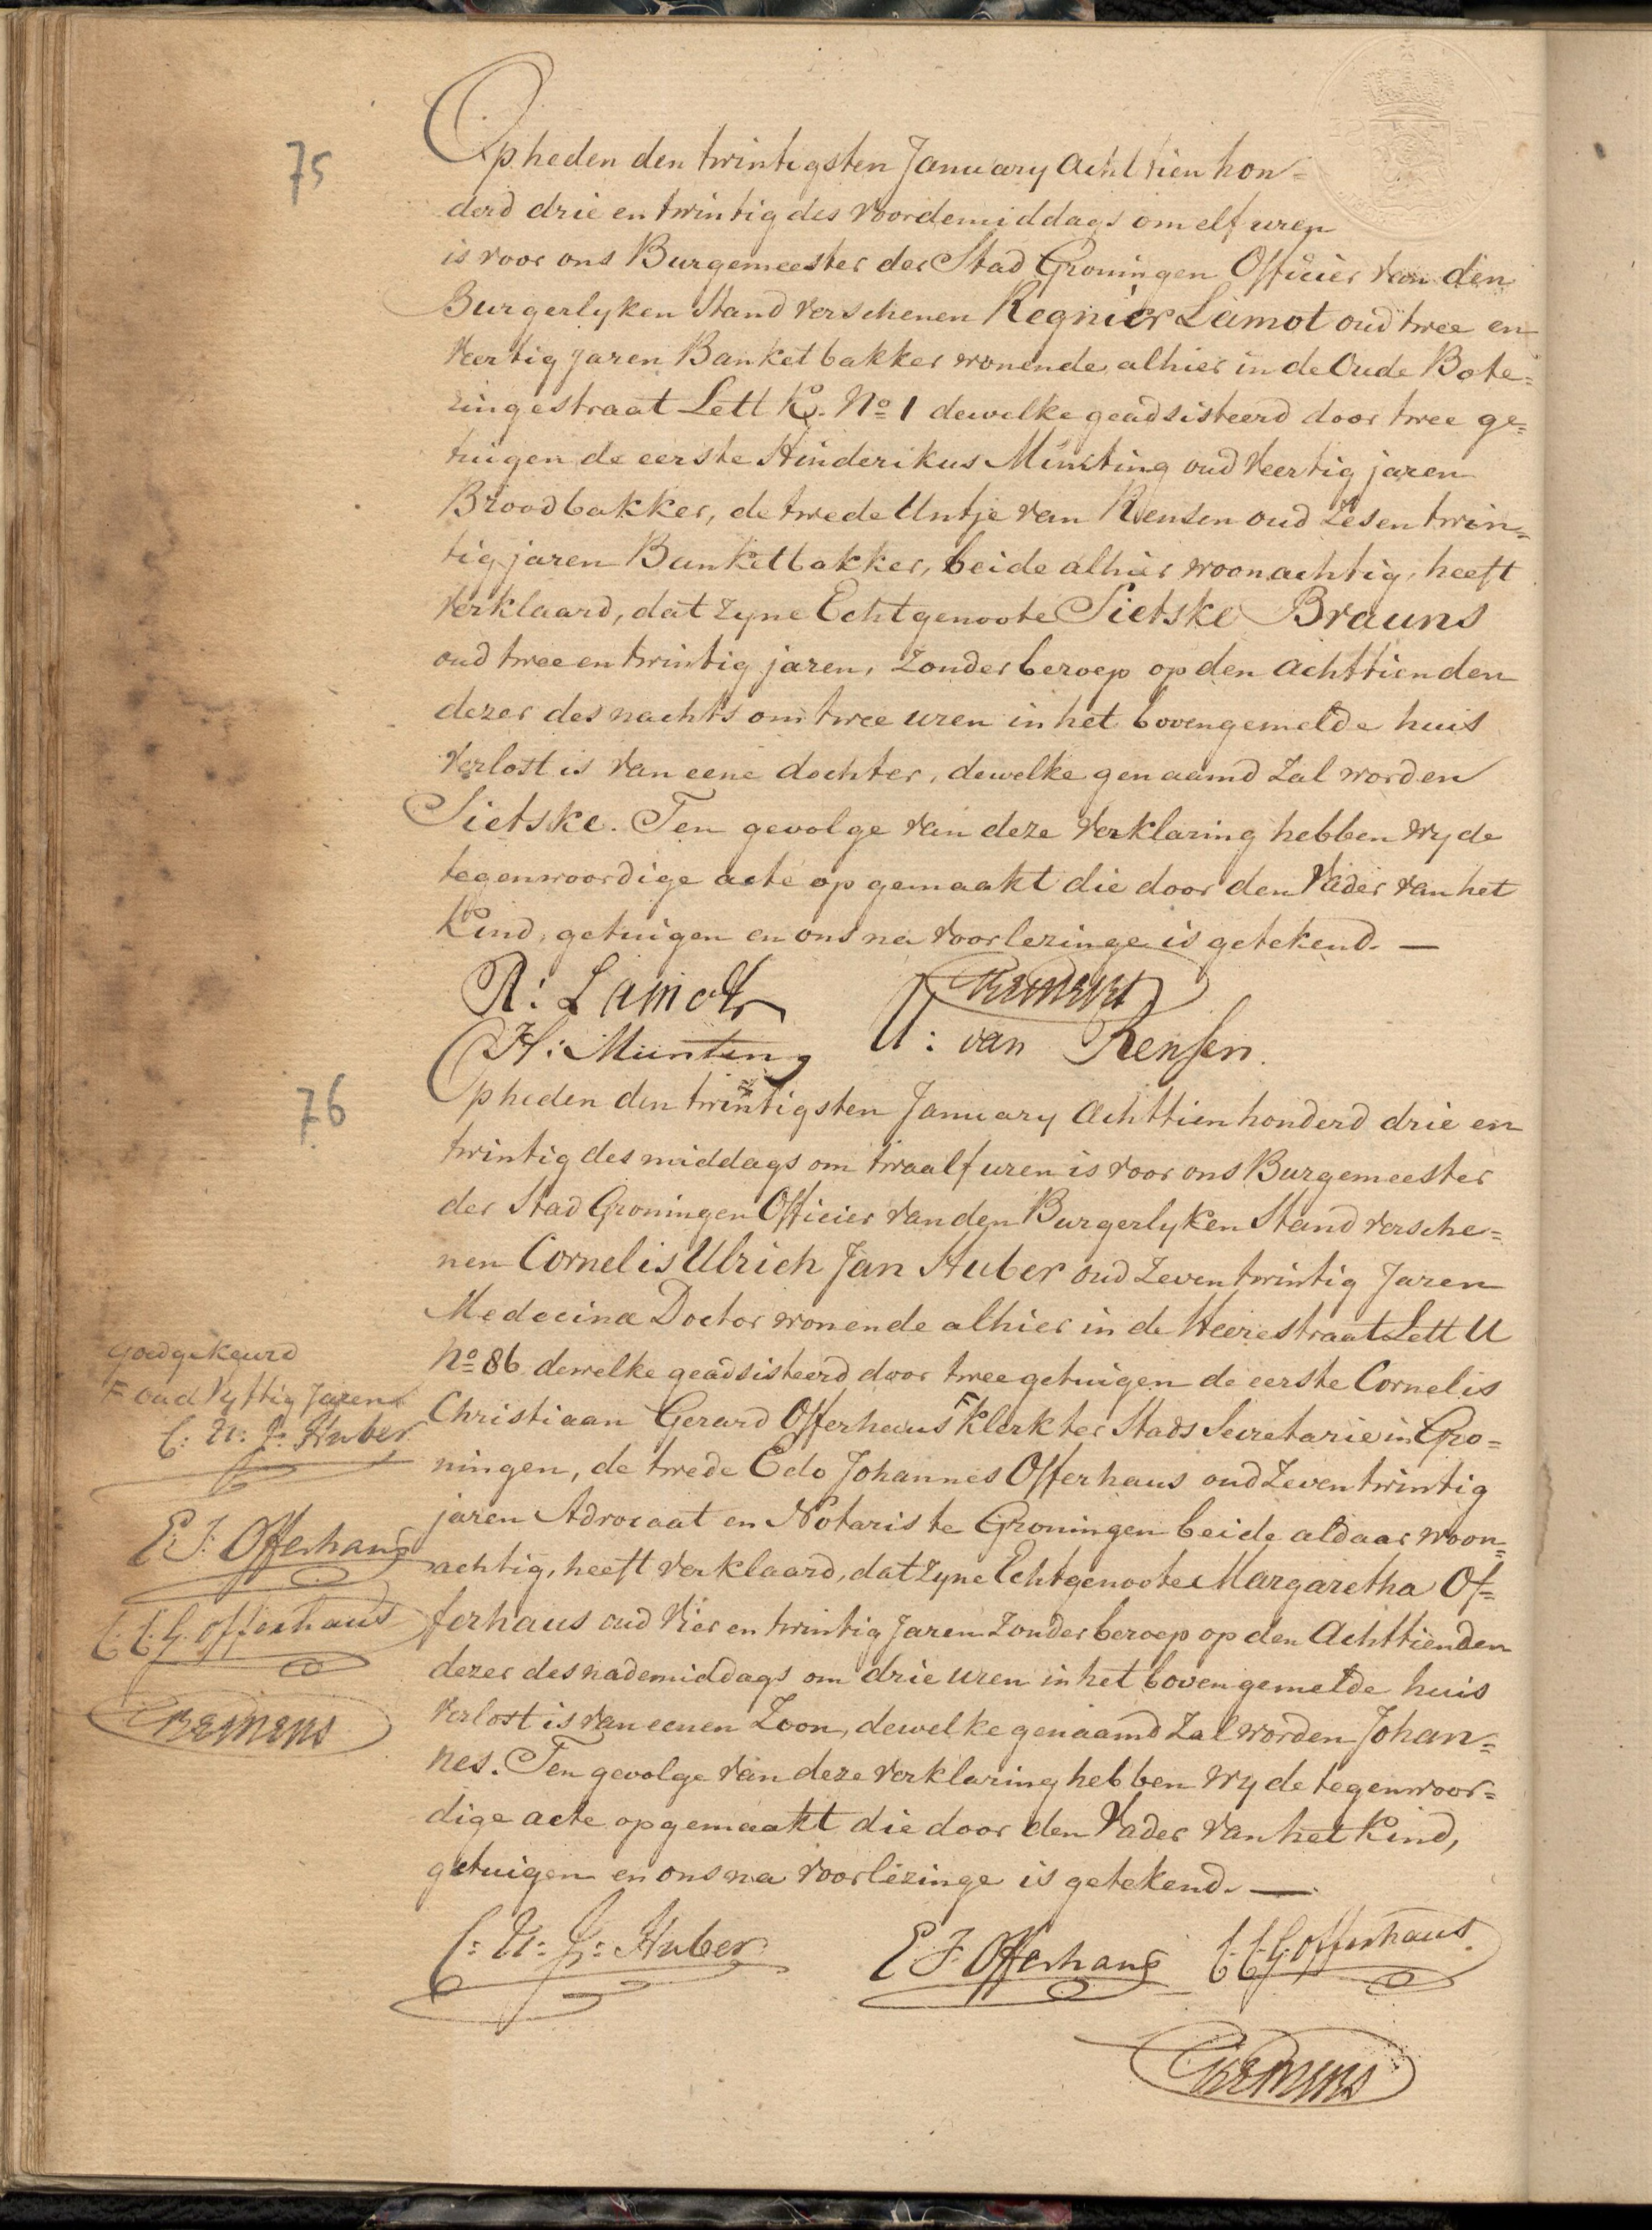 75
Op heden den twintigsten January Achttien hon=
derd drie en twintig des voordemiddags om elf uren
is voor ons Burgemeester der Stad Groningen Officier van den
Burgerlyken Stand verschenen Regnier Lamot oud twee en
veertig jaren Banketbakker wonende alhier in de Oude Bote=
ringestraat Lett K. No 1 dewelke geadsisteerd door twee ge=
tuigen de eerste Hinderikus Munting oud veertig jaren
Broodbakker, de twede Untje van Rensen oud zes en twin=
tig jaren Banketbakker, beide alhier woonachtig, heeft
verklaard, dat zyne Echtgenoote Sietske Brauns
oud twee en twintig jaren, zonder beroep op den achttienden
dezer des nachts om twee uren in het bovengemelde huis
verlost is van eene dochter, dewelke genaamd zal worden
Sietske. Ten gevolge van deze verklaring hebben wy de
tegenwoordige acte opgemaakt die door den Vader van het
Kind, getuigen en ons na voorlezinge is getekend. —
R: Lamot
H: Munting U: van Rensen.
76
Op heden den twintigsten January Achttien honderd drie en
twintig des middags om twaalf uren is voor ons Burgemeester
der Stad Groningen Officier van den Burgerlyken Stand versche=
nen Cornelis Ulrich Jan Huber oud zeven twintig Jaren
Medecinæ Doctor wonende alhier in de Heerestraat Lett U
No 86 dewelke geadsisteerd door twee getuigen de eerste Cornelis
Christiaan Gerard Offerhaus F Klerk ter Stads Secretarie in Gro=
ningen, de twede Edo Johannes Offerhaus oud zeven twintig
jaren Advocaat en Notaris te Groningen beide aldaar woon=
achtig, heeft verklaard, dat zyne Echtgenoote Margaretha Of=
ferhaus oud vier en twintig Jaren zonder beroep op den Achttienden
dezer des nademiddags om drie uren in het bovengemelde huis
verlost is van eenen Zoon, dewelke genaamd zal worden Johan=
nes. Ten gevolge van deze verklaring hebben wy de tegenwoor=
dige acte opgemaakt die door den Vader van het Kind,
getuigen en ons na voorlezinge is getekend. —
goedgekeurd
F oud vyftig Jaren
C: U: J: Huber
E. J. Offerhaus
C. C. G. Offerhaus
C: U: J: Huber E J Offerhaus C. C. G. Offerhaus